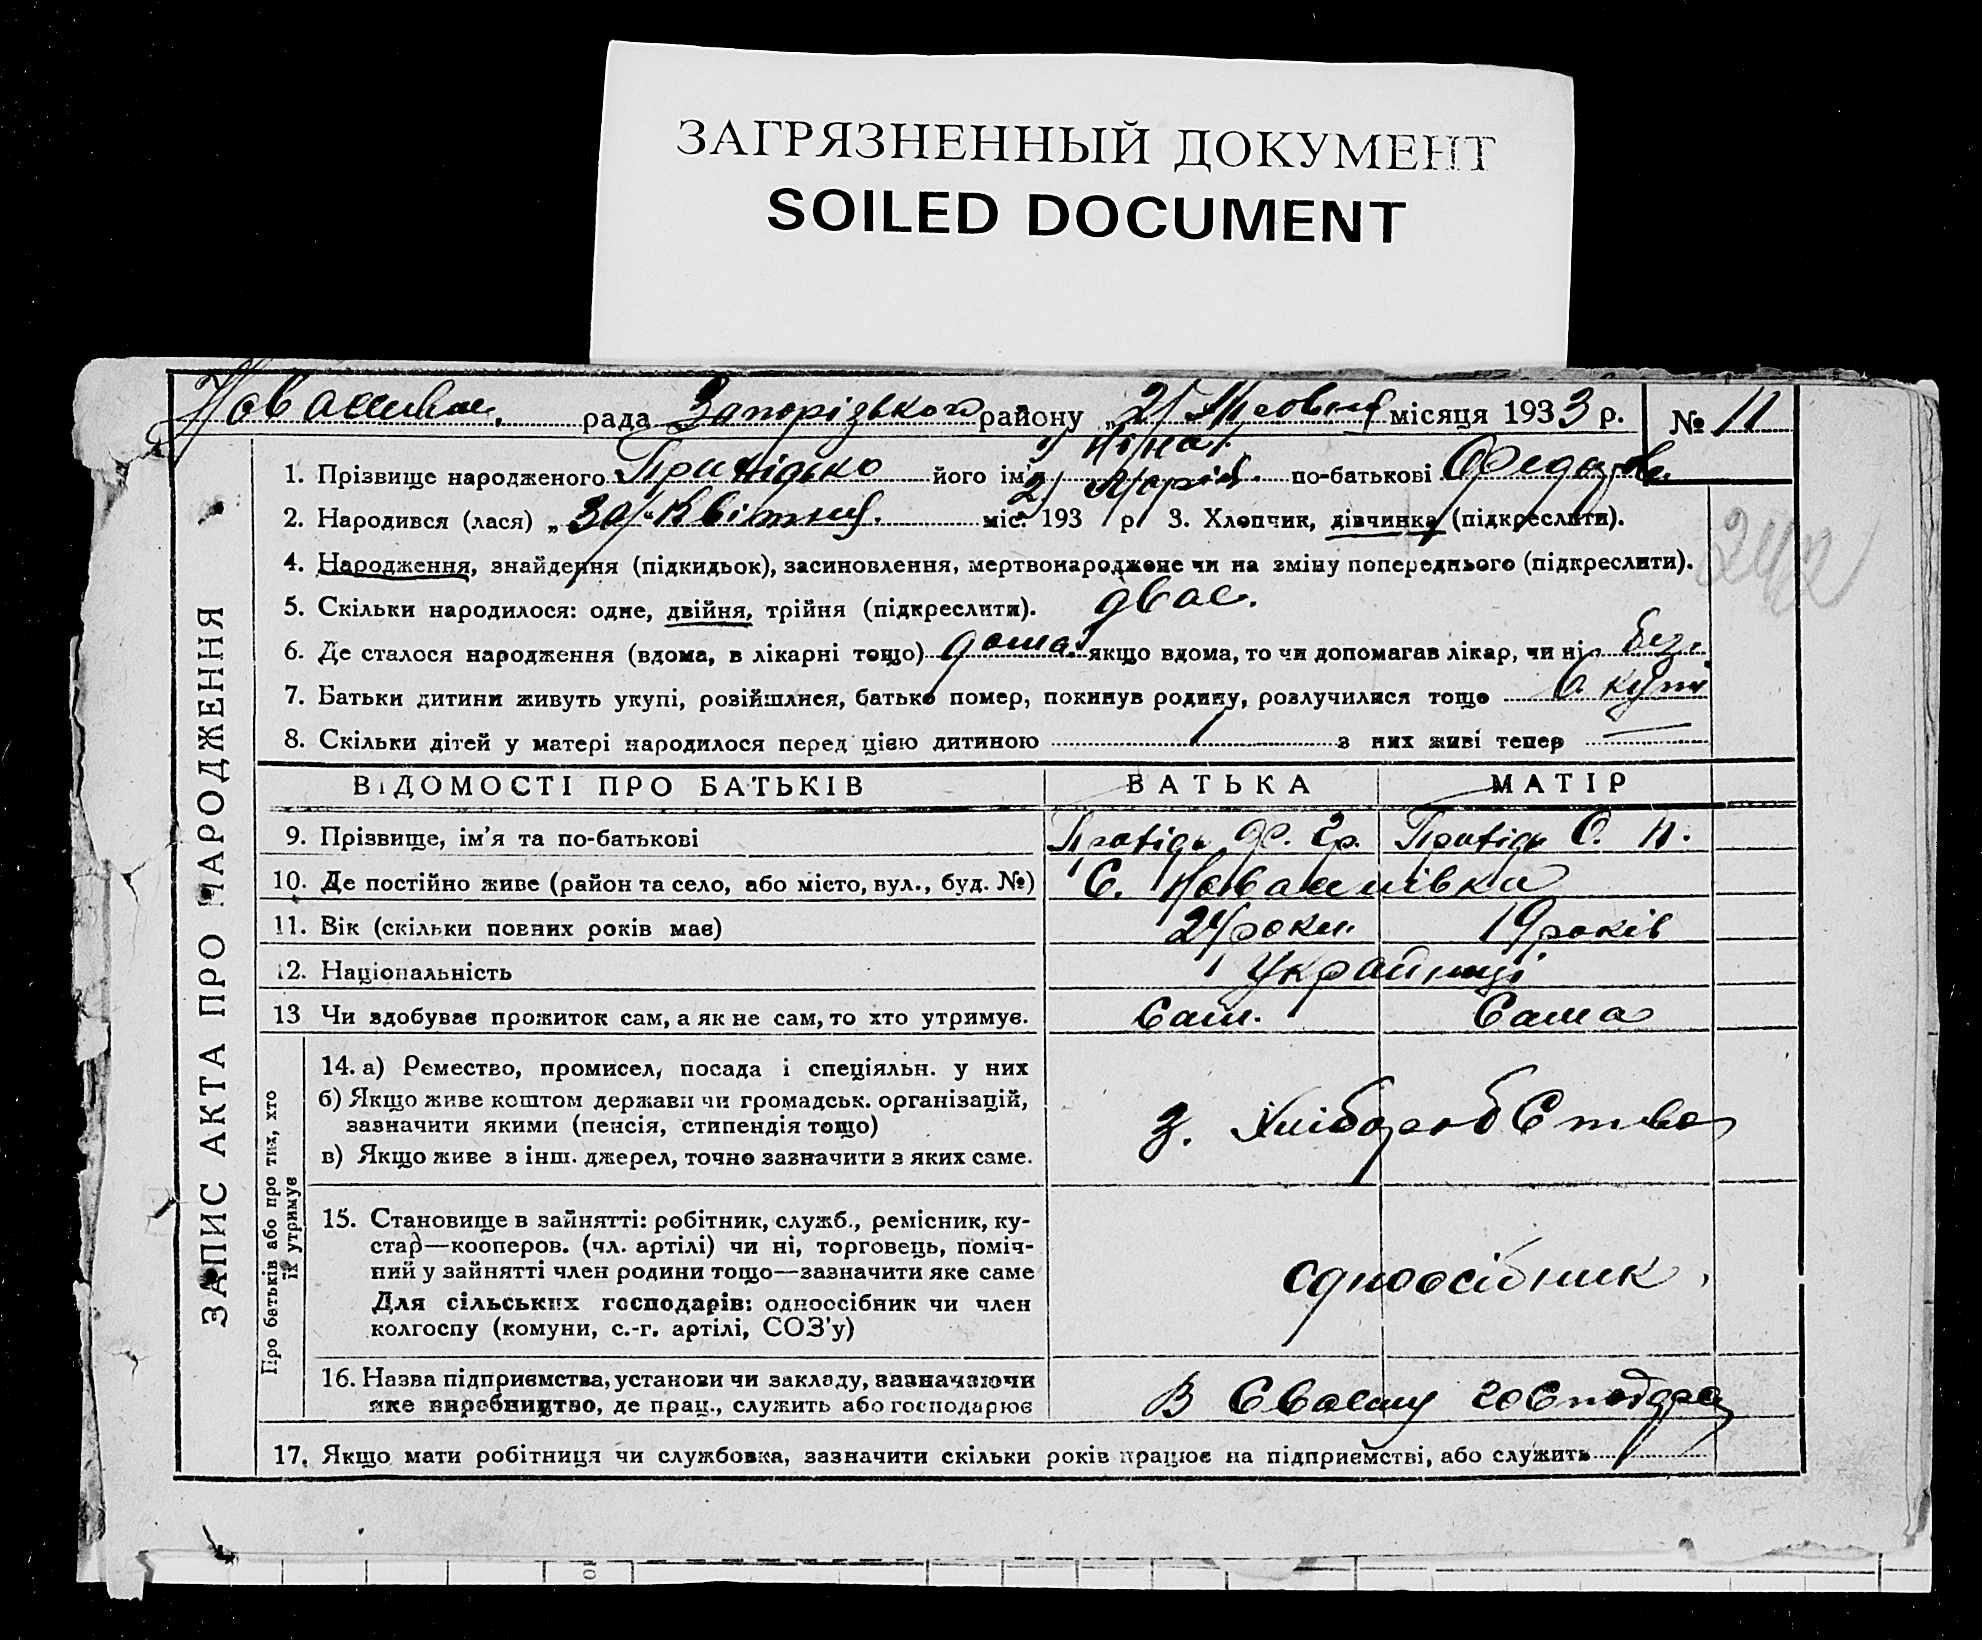 ЗАГРЯЗНЕННЫЙ ДОКУМЕНТ
SOILED DOCUMENT
рада Запорізького району „21 місяця 1933 р. № 11
1. Прізвище народженого його ім'я 1) Ніна 2) Марія по-батькові
2. Народився (лася) „30 Квітня міс. 193 р. 3. Хлопчик, дівчинка (підкреслити).
4. Народження, знайдення (підкидьок), засиновлення, мертвонароджене чи на зміну попереднього (підкреслити).
5. Скільки народилося: одне, двійня, трійня (підкреслити). двае.
6. Де сталося народження (вдома, в лікарні тощо) дома якщо вдома, то чи допомагав лікар, чи ні без.
7. Батьки дитини живуть укупі, розійшлися, батько помер, покинув родину, розлучилися тощо
8. Скільки дітей у матері народилося перед цією дитиною з них живі тепер —
ЗАПИС АКТА ПРО НАРОДЖЕННЯ
ВІДОМОСТІ ПРО БАТЬКІВ БАТЬКА МАТІР
9. Прізвище, ім'я та по-батькові
10. Де постійно живе (район та село, або місто, вул., буд. №) С.
11. Вік (скільки повних років має) 24 роки 19 років
12. Національність Українці
13 Чи здобуває прожиток сам, а як не сам, то хто утримує. Сам. Сама
Про батьків або про тих, хто їх утримує
14. а) Ремество, промисел, посада і спеціяльн. у них
б) Якщо живе коштом держави чи громадськ. організацій,
зазначити якими (пенсія, стипендія тощо)
в) Якщо живе з інш. джерел, точно зазначити з яких саме.
з. Хліборобства
15. Становище в зайнятті: робітник, служб., ремісник, ку-
стар—кооперов. (чл. артілі) чи ні, торговець, поміч-
ний у зайнятті член родини тощо—зазначити яке саме
Для сільських господарів: одноосібник чи член
колгоспу (комуни, с.-г. артілі, СОЗ'у)
одноосібник
16. Назва підприємства, установи чи закладу, зазначаючи
яке виробництво, де прац., служить або господарює
В своєму
17. Якщо мати робітниця чи службовка, зазначити скільки років працює на підприємстві, або служить